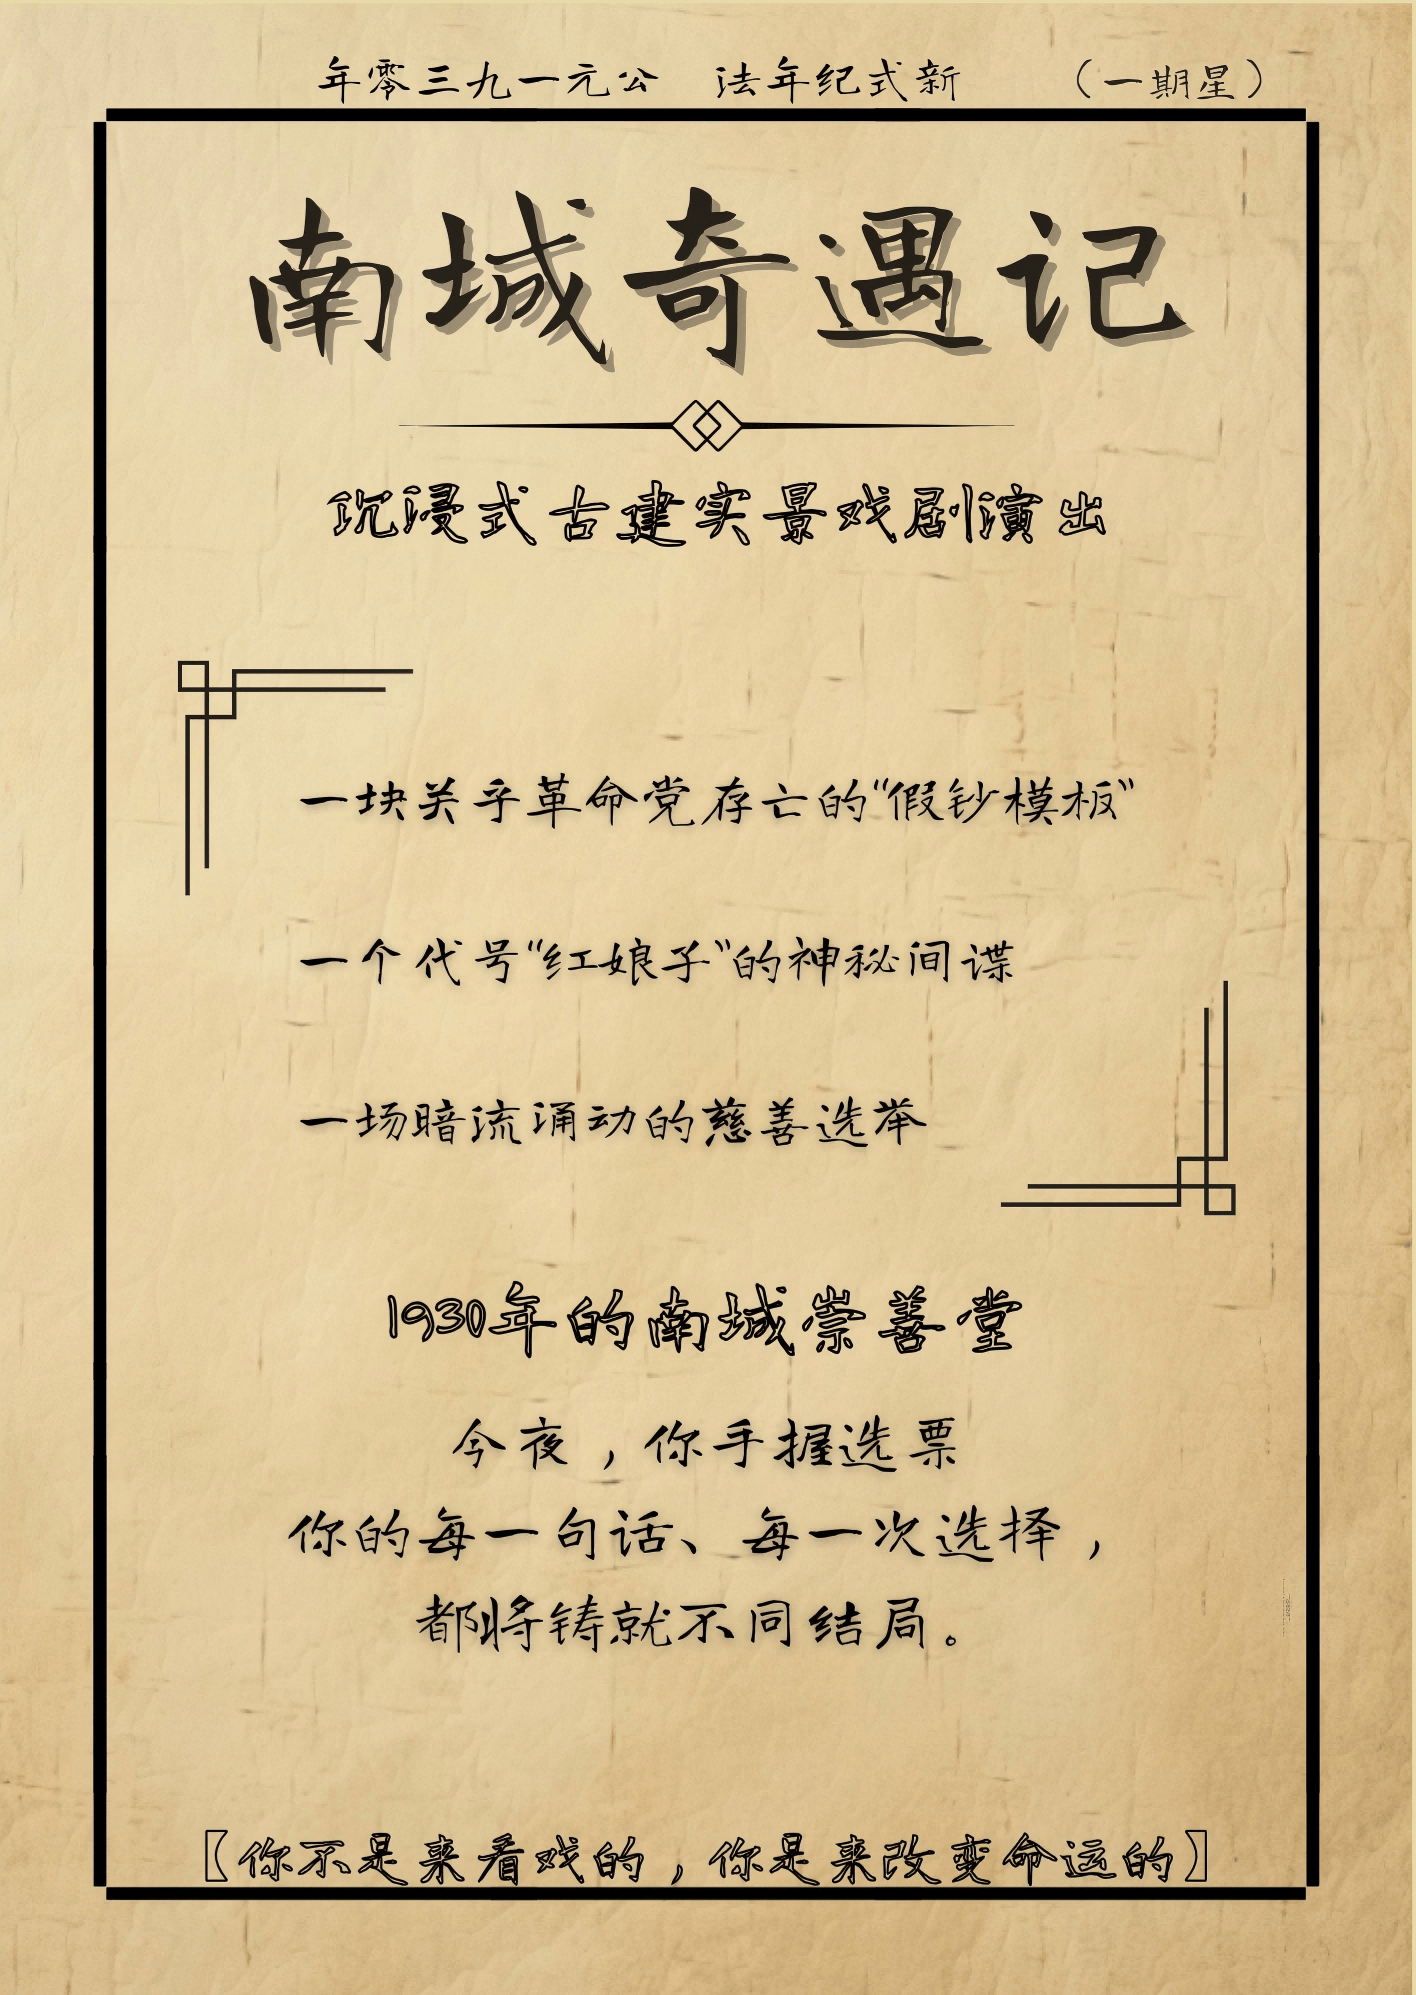 （星期一） 新式纪年法 公元一九三零年
南城奇遇记
沉浸式古建实景戏剧演出
一块关乎革命党存亡的“假钞模板”
一个代号“红娘子”的神秘间谍
一场暗流涌动的慈善选举
1930年的南城崇善堂
今夜，你手握选票
你的每一句话、每一次选择，
都将铸就不同结局。
【你不是来看戏的，你是来改变命运的】